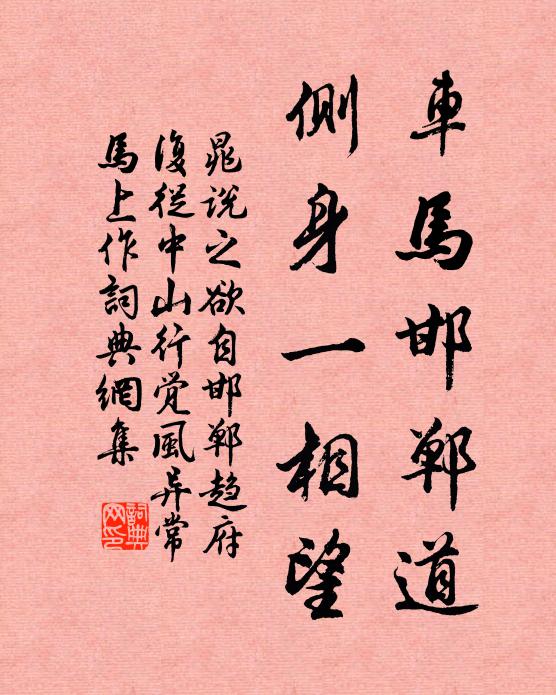 車馬邯鄲道
側身一相望
晁説之欲自邯鄲趋府
復從中山行觉風异常
馬上作詞典網集
詞典
网印